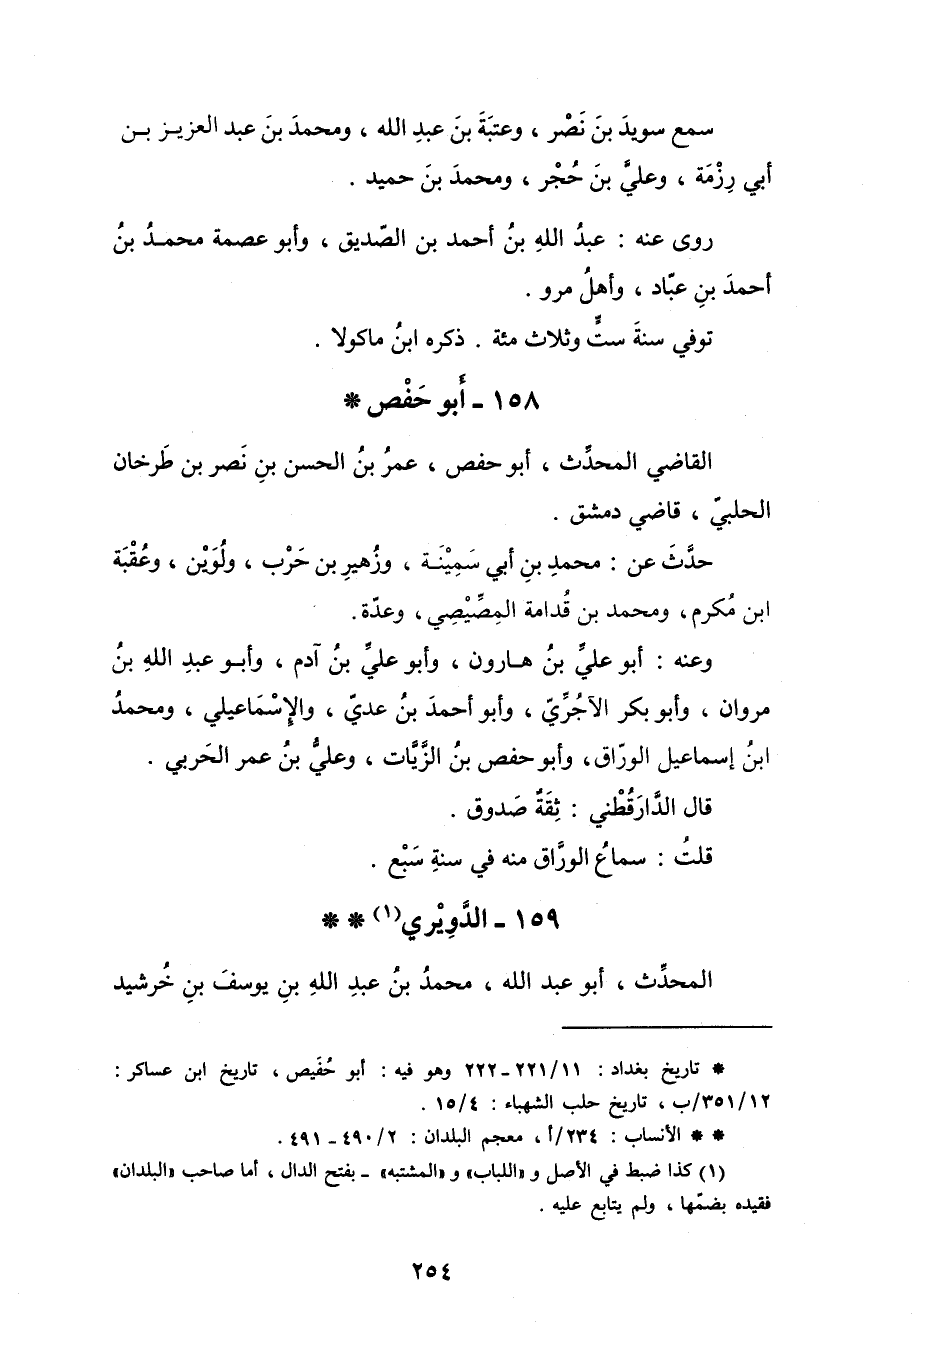 سمع سويدَ بنَ نَصْر ، وعتبَةَ بنَ عبدِ الله ، ومحمدَ بنَ عبد العزيز بن
أبي رِزْمَة ، وعليَّ بنَ حُجْر ، ومحمدَ بنَ حميد .
روى عنه : عبدُ اللهِ بنُ أحمد بن الصّديق ، وأبو عصمة محمدُ بنُ
أحمدَ بنِ عبّاد ، وأهلُ مرو .
توفي سنةَ ستٍّ وثلاث مئة . ذكره ابنُ ماكولا .
١٥٨ - أَبو حَفْص *
القاضي المحدِّث ، أبو حفص ، عمرُ بنُ الحسن بنِ نَصر بن طَرخان
الحلبيّ ، قاضي دمشق .
حدَّثَ عن : محمدِ بنِ أبي سَمِيْنَة ، وزُهيرِ بن حَرْب ، ولُوَيْن ، وعُقْبَة
ابن مُكرم، ومحمد بن قُدامة المِصِّيْصِي، وعدّة.
وعنه : أبو عليٍّ بنُ هارون ، وأبو عليٍّ بنُ آدم ، وأبو عبدِ اللهِ بنُ
مروان ، وأبو بكر الآجُرِّيّ ، وأبو أحمدَ بنُ عديّ ، والإِسْمَاعيلي ، ومحمدُ
ابنُ إسماعيل الورّاق، وأبو حفص بنُ الزَّيَّات ، وعليُّ بنُ عمر الحَربي .
قال الدَّارَقُطْني : ثِقَةٌ صَدوق .
قلتُ : سماعُ الورَّاق منه في سنةِ سَبْع .
١٥٩ - الدَّوِيْري(١) * *
المحدِّث ، أبو عبد الله ، محمدُ بنُ عبدِ اللهِ بنِ يوسفَ بنِ خُرشيد
* تاريخ بغداد : ٢٢١/١١-٢٢٢ وهو فيه : أبو حُفَيص ، تاريخ ابن عساكر :
٣٥١/١٢/ب ، تاريخ حلب الشهباء : ١٥/٤ .
* * الأنساب : ٢٣٤/أ ، معجم البلدان : ٤٩٠/٢ - ٤٩١ .
(١) كذا ضبط في الأصل و «اللباب» و «المشتبه» - بفتح الدال ، أما صاحب «البلدان»
فقيده بضمّها ، ولم يتابع عليه .
٢٥٤